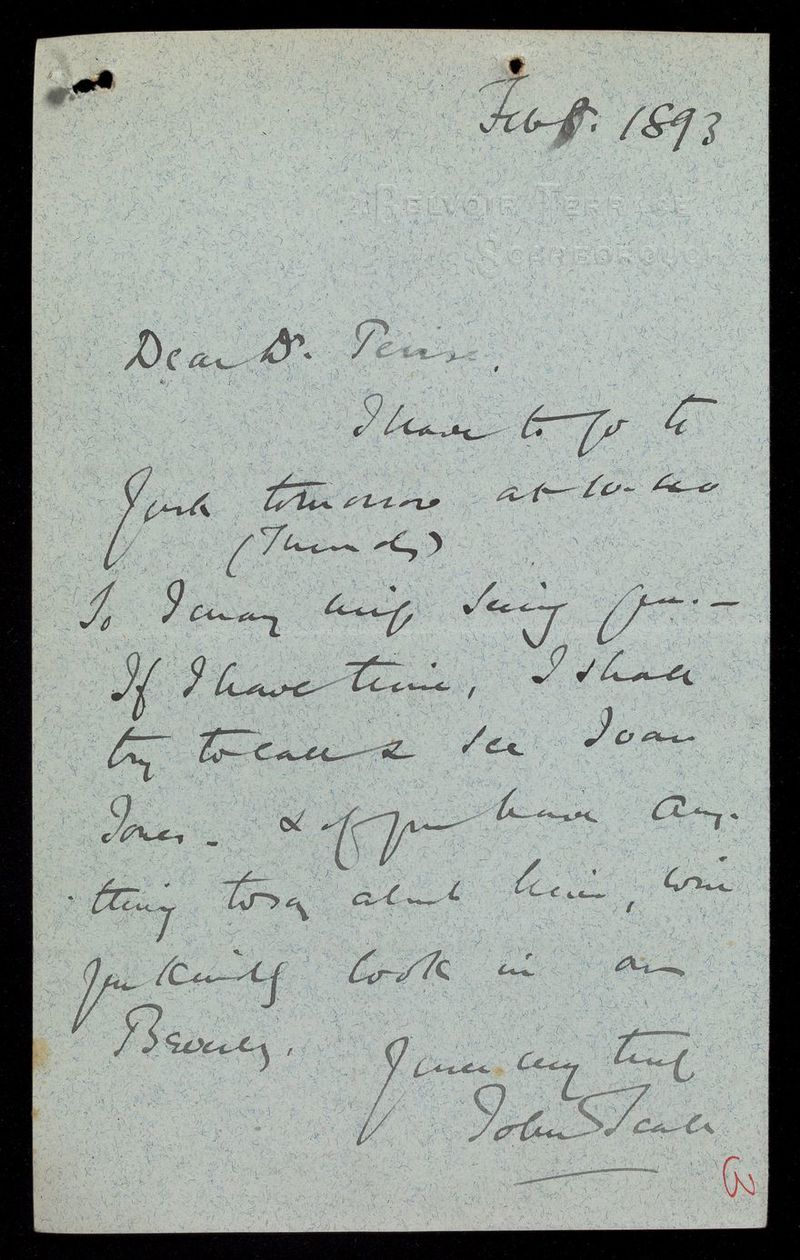 Feb 8. 1893
2 Belvoir Terrace
Scarborough
Dear Dr.
I have to go to
York tomorrow at
(Thursday)
So I may miss seeing you. —
If I have time, I shall
try to call & see Ivan
Jones. & if you have any-
thing to say about him, will
you kindly look in on
Yours very truly
John Teale